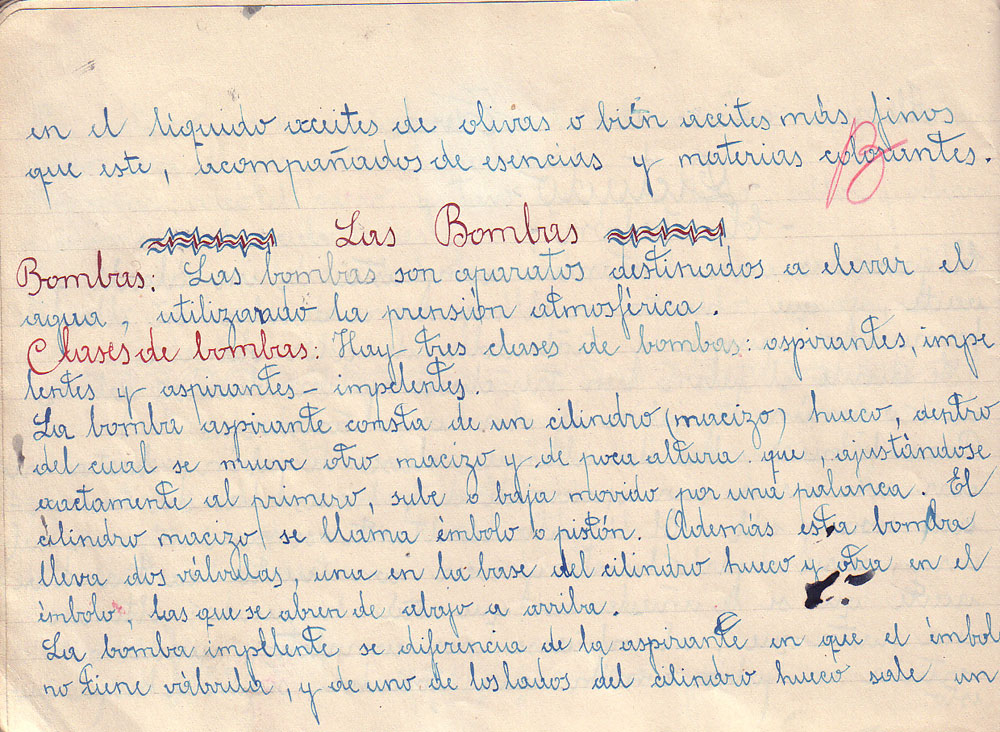 en el líquido aceites de olivas o bién aceites más finos
que este, acompañados de esencias y materias colorantes.
B
Las Bombas
Bombas: Las bombas son aparatos destinados a elevar el
agua, utilizando la prensión atmosférica.
Clases de bombas: Hay tres clases de bombas: aspirantes, impe
lentes y aspirantes - impelentes.
La bomba aspirante consta de un cilindro (macizo) hueco, dentro
del cual se mueve otro macizo y de poca altura que, ajustándose
exactamente al primero, sube o baja movido por una palanca. El
cilindro macizo se llama émbolo o pistón. Además esta bomba
lleva dos válvulas, una en la base del cilindro hueco y otra en el
émbolo, las que se abren de abajo a arriba.
La bomba impelente se diferencia de la aspirante en que el émbol
no tiene vábrula, y de uno de los lados del cilindro hueco sale un